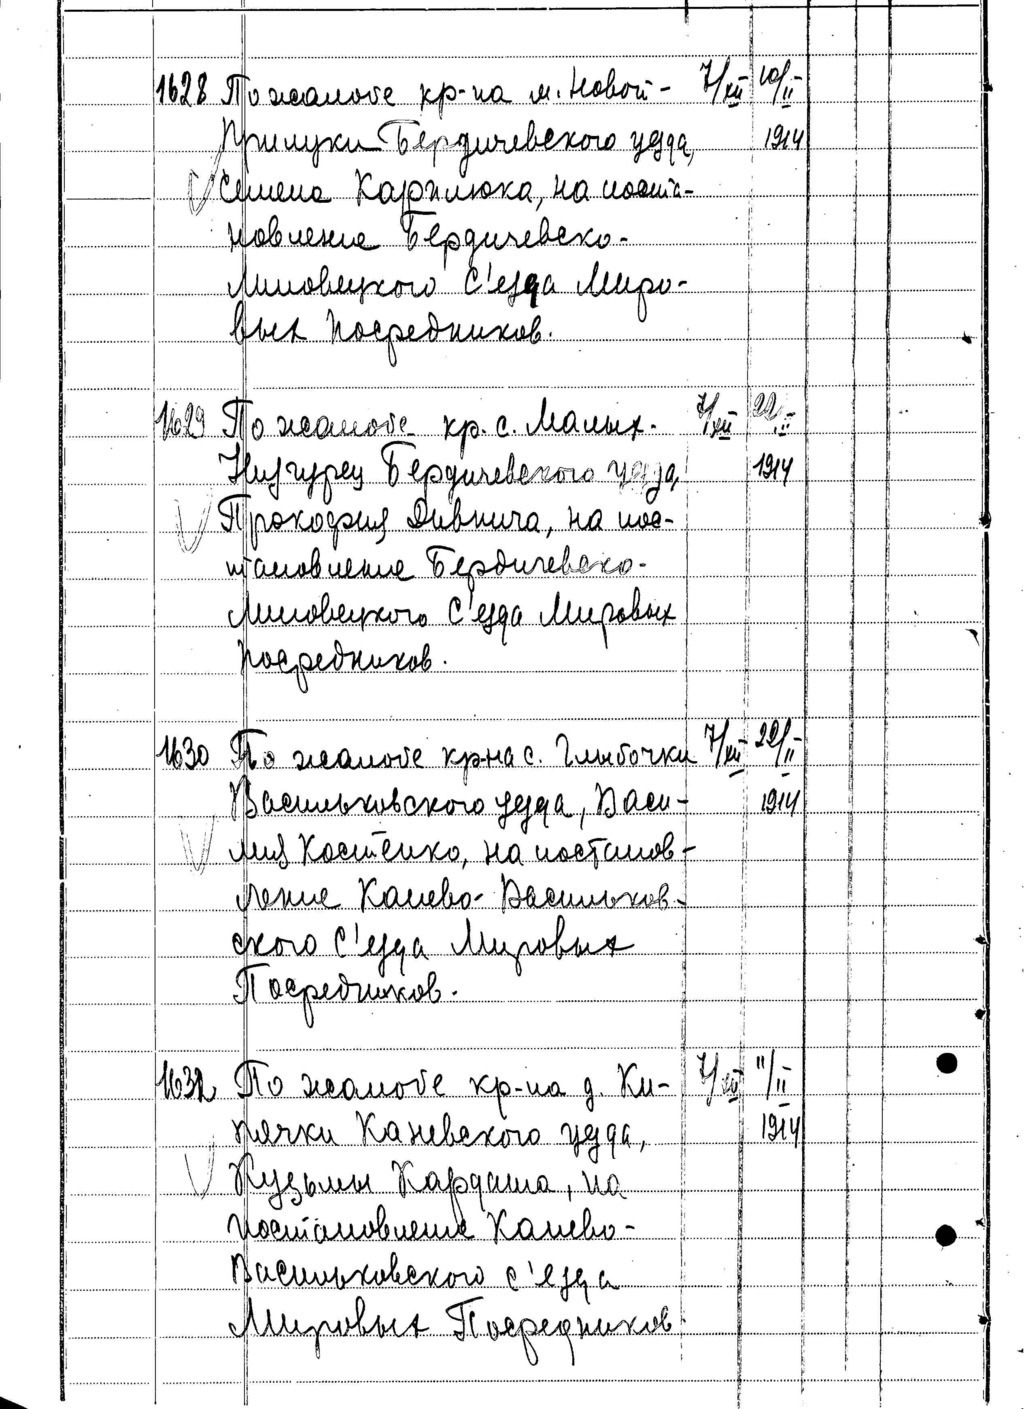 1628 По жалобе кр-на м. Новой- 7/XII 10/II-
Прилуки Бердичевского уезда, 1914
Семена Карпюка, на поста-
новление Бердичевско-
Липовецкого С'езда Миро-
вых Посредников.
1629 По жалобе кр. с. Малых- 7/XII 22/II-
Низгурец Бердичевского уезда, 1914
Прокофия Дивнича, на пос-
тановление Бердичевско-
Липовецкого С'езда Мировых
Посредников.
1630 По жалобе кр-на с. Глыбочки 7/XII 22/II-
Васильковского уезда, Васи- 1914
лия Костенко, на постанов-
ление Канево-Васильков-
ского С'езда Мировых
Посредников.
1632 По жалобе кр-на д. Ки- 7/XII 11/II
пячки Каневского уезда, 1914
Кузьмы Кардаша, на
постановление Канево-
Васильковского с'езда
Мировых Посредников.